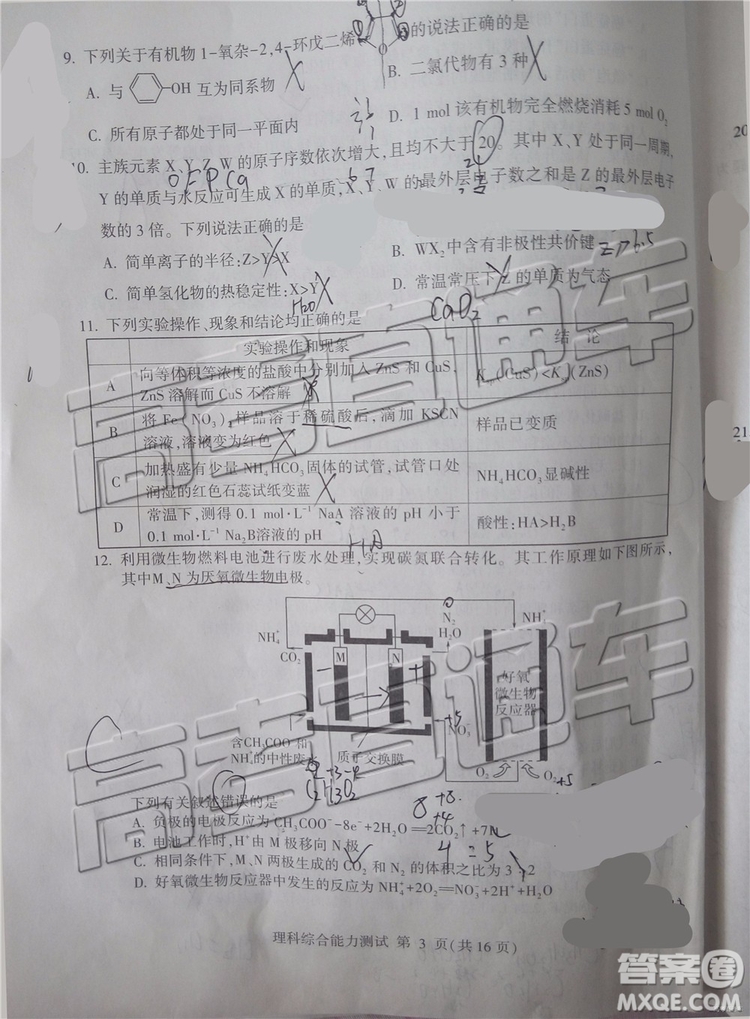 9. 下列关于有机物1-氧杂-2,4-环戊二烯 的说法正确的是
A. 与 -OH 互为同系物
B. 二氯代物有3种
C. 所有原子都处于同一平面内
D. 1 mol 该有机物完全燃烧消耗5 mol O₂
10. 主族元素X、Y、Z、W的原子序数依次增大,且均不大于20。其中X、Y处于同一周期,
O F P Ca
Y的单质与水反应可生成X的单质,X、Y、W的最外层电子数之和是Z的最外层电子
数的3倍。下列说法正确的是
A. 简单离子的半径:Z>Y>X
B. WX₂中含有非极性共价键
C. 简单氢化物的热稳定性:X>Y
D. 常温常压下Z的单质为气态
H₂O
CaO₂
11. 下列实验操作、现象和结论均正确的是
实验操作和现象 结 论
A 向等体积等浓度的盐酸中分别加入ZnS和CuS,
ZnS溶解而CuS不溶解
(CuS)<K (ZnS)
B 将Fe(NO₃)₂样品溶于稀硫酸后,滴加KSCN
溶液,溶液变为红色
样品已变质
C 加热盛有少量NH₄HCO₃固体的试管,试管口处
润湿的红色石蕊试纸变蓝
NH₄HCO₃显碱性
D 常温下,测得0.1 mol·L⁻¹ NaA溶液的pH小于
0.1 mol·L⁻¹ Na₂B溶液的pH
酸性:HA>H₂B
HA
12. 利用微生物燃料电池进行废水处理,实现碳氮联合转化。其工作原理如下图所示,
其中M、N为厌氧微生物电极。
NH₄⁺
CO₂
M
N
N₂
H₂O
NH₄⁺
好氧
微生物
反应器
+5
NO₃⁻
含CH₃COO⁻和
NH₄⁺的中性废水
质子交换膜
O₂
O₂
+5
下列有关叙述错误的是
A. 负极的电极反应为CH₃COO⁻-8e⁻+2H₂O═2CO₂↑+7
B. 电池工作时,H⁺由M极移向N极
C. 相同条件下,M、N两极生成的CO₂和N₂的体积之比为3:2
D. 好氧微生物反应器中发生的反应为NH₄⁺+2O₂═NO₃⁻+2H⁺+H₂O
理科综合能力测试 第 3 页(共16页)
高考直通车
高考直通车
20
21
答案圈
MXQE.COM